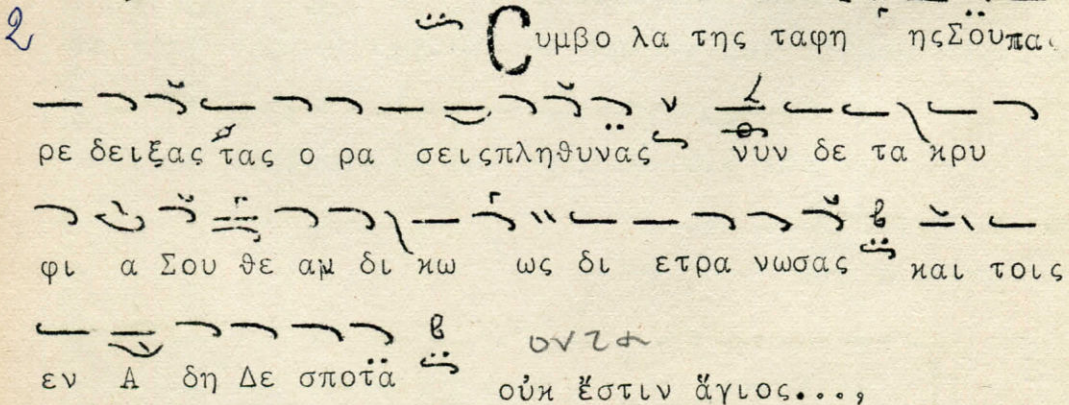 2
Συμβο λα της ταφη ης Σου πα
ρε δειξας τας ο ρα σεις πληθυνας νυν δε τα κρυ
φι α Σου θε αν δι κω ως δι ετρα νωσας και τοις
εν Α δη Δε σποτα
οντα
οὐκ ἔστιν ἅγιος...,